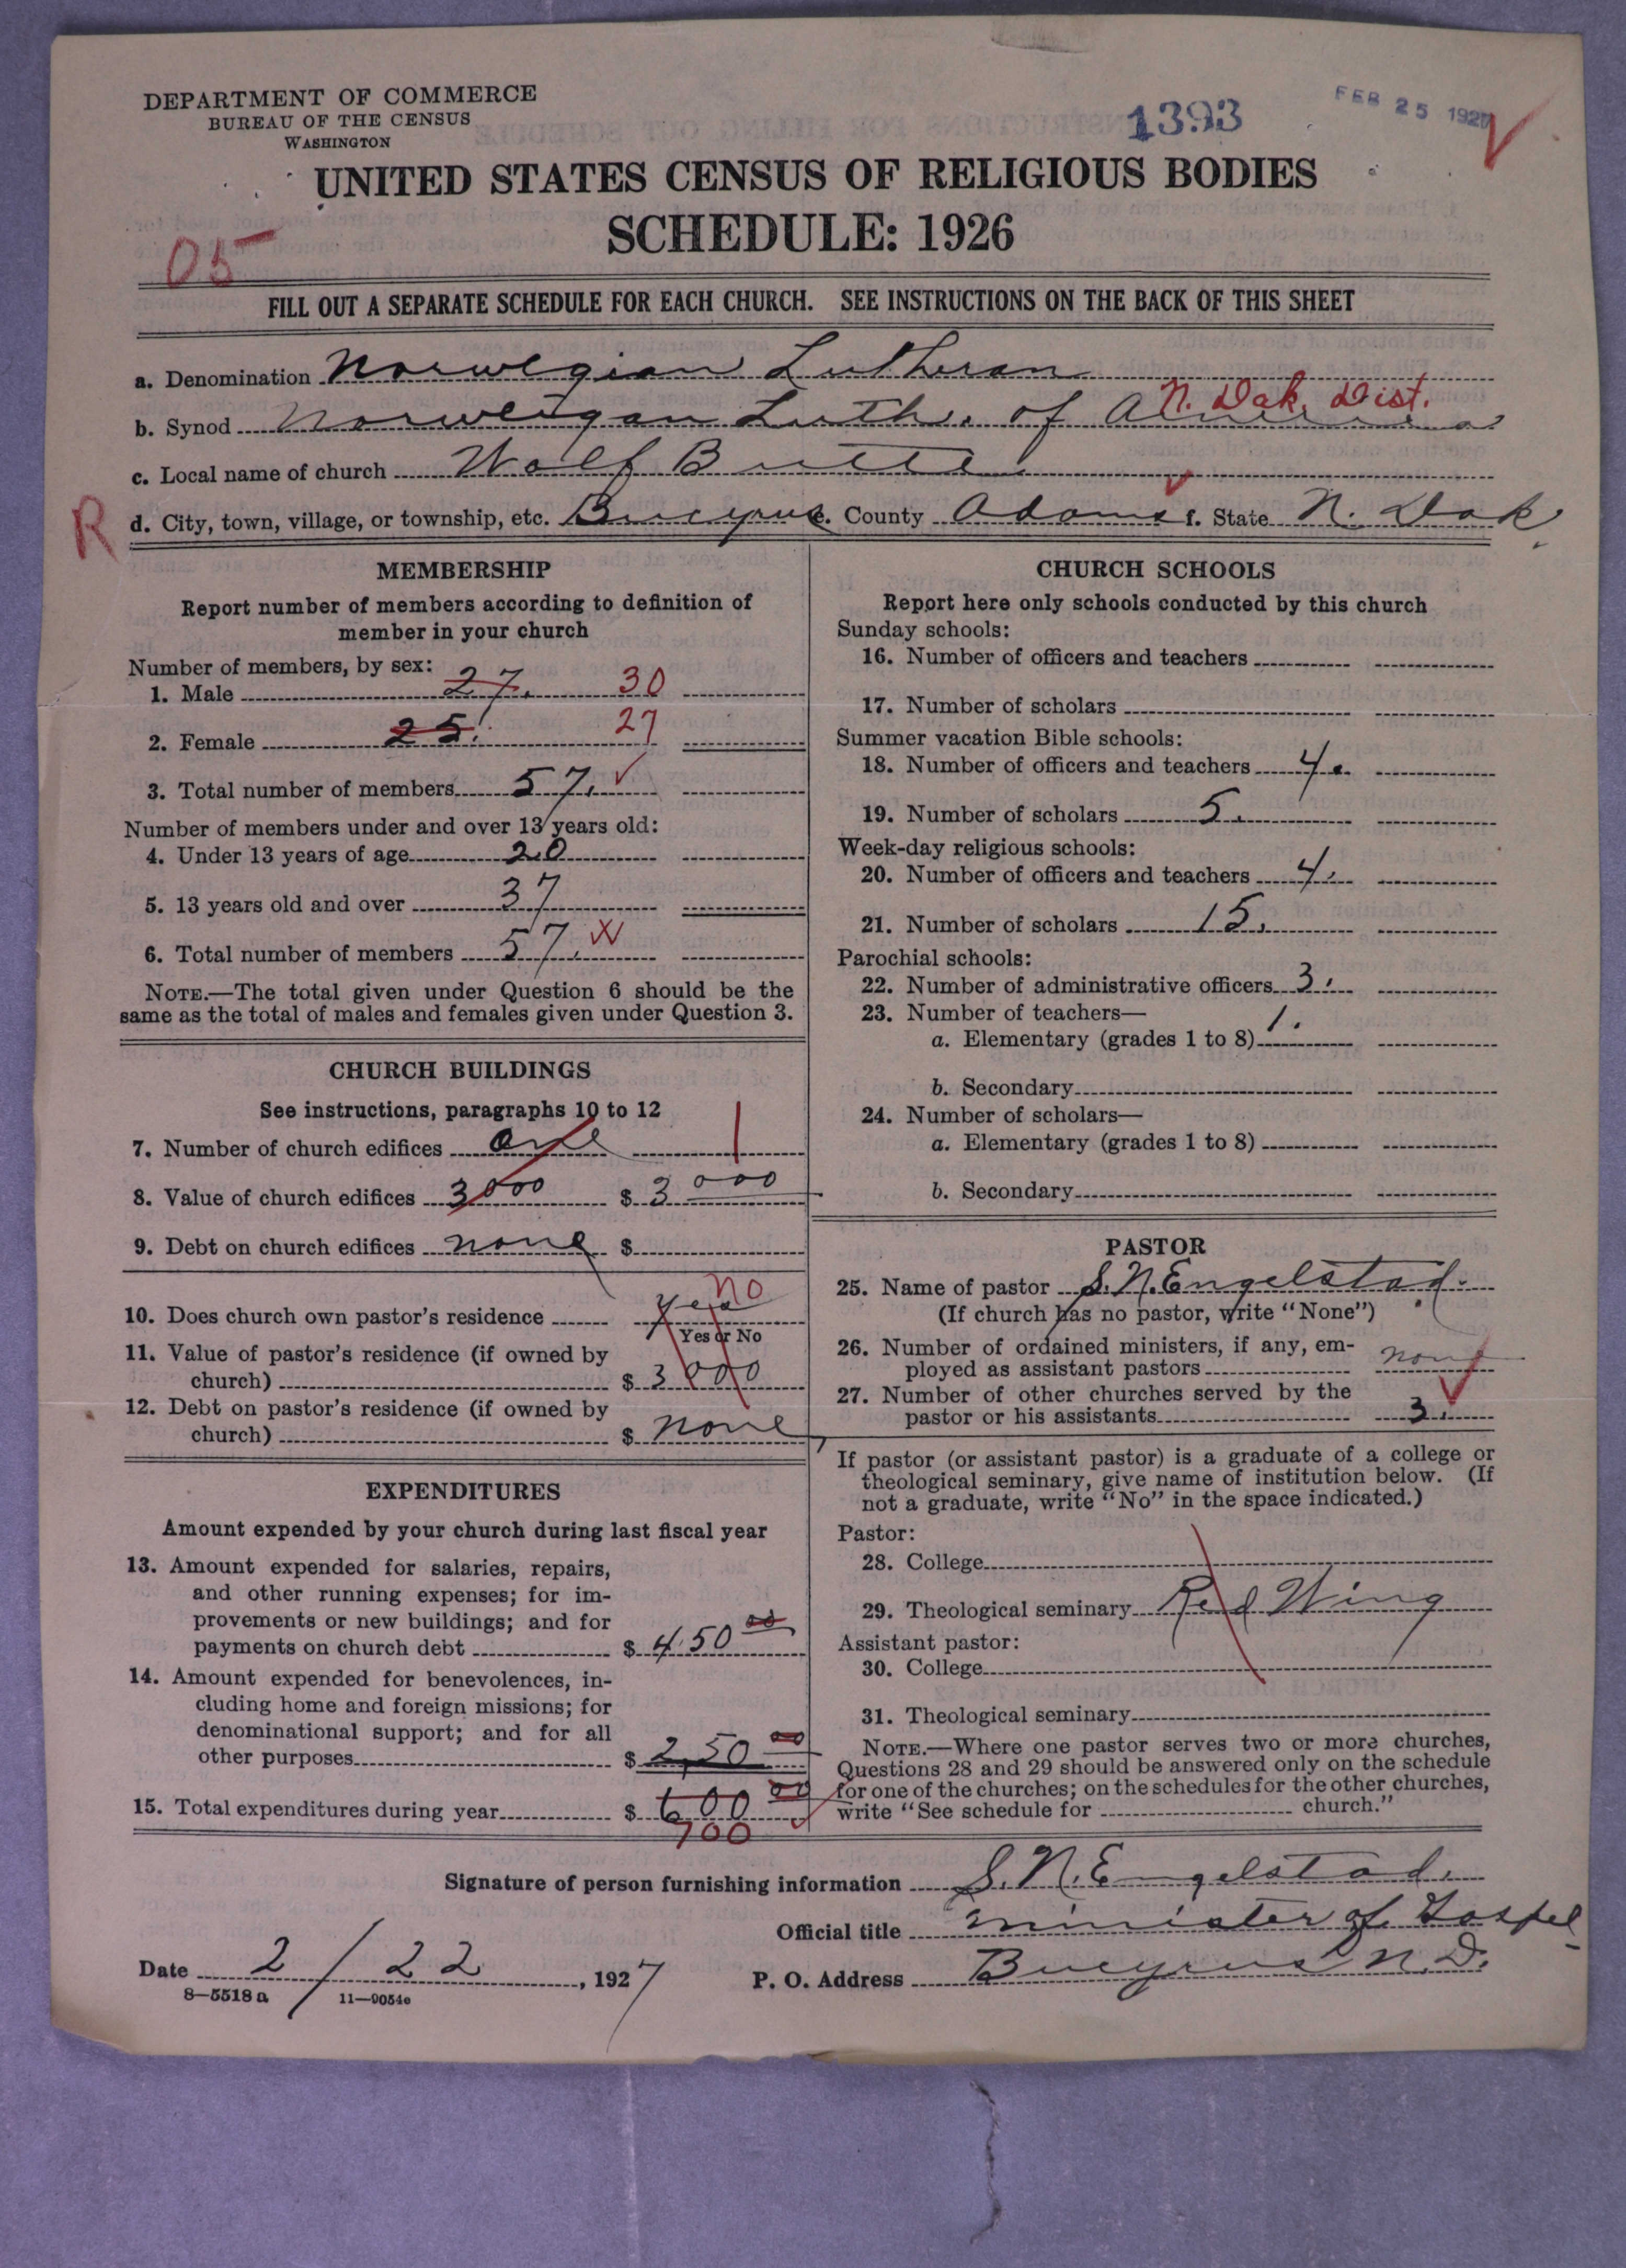 DEPARTMENT OF COMMERCE
BUREAU OF THE CENSUS
WASHINGTON
1393
FEB 25 1927
UNITED STATES CENSUS OF RELIGIOUS BODIES
SCHEDULE: 1926
05
FILL OUT A SEPARATE SCHEDULE FOR EACH CHURCH. SEE INSTRUCTIONS ON THE BACK OF THIS SHEET
a. Denomination Norwegian Lutheran
N. Dak. Dist.
b. Synod Norweigan Luth. of America
c. Local name of church Wolf Butte
R
d. City, town, village, or township, etc. Bucyrus e. County Adams f. State N. Dak.
MEMBERSHIP
Report number of members according to definition of
member in your church
Number of members, by sex:
1. Male 27. 30
2. Female 25. 27
3. Total number of members 57.
Number of members under and over 13 years old:
4. Under 13 years of age 20
5. 13 years old and over 37
6. Total number of members 57.
NOTE.—The total given under Question 6 should be the
same as the total of males and females given under Question 3.
CHURCH BUILDINGS
See instructions, paragraphs 10 to 12
7. Number of church edifices one 1
8. Value of church edifices 3000 $ 3000
9. Debt on church edifices none $
no
10. Does church own pastor's residence yes
Yes or No
11. Value of pastor's residence (if owned by
church) $ 3000
12. Debt on pastor's residence (if owned by
church) $ none
EXPENDITURES
Amount expended by your church during last fiscal year
13. Amount expended for salaries, repairs,
and other running expenses; for im-
provements or new buildings; and for
payments on church debt $ 450 00
14. Amount expended for benevolences, in-
cluding home and foreign missions; for
denominational support; and for all
other purposes $ 250 00
15. Total expenditures during year $ 600 00
700
CHURCH SCHOOLS
Report here only schools conducted by this church
Sunday schools:
16. Number of officers and teachers
17. Number of scholars
Summer vacation Bible schools:
18. Number of officers and teachers 4.
19. Number of scholars 5.
Week-day religious schools:
20. Number of officers and teachers 4.
21. Number of scholars 15.
Parochial schools:
22. Number of administrative officers 3.
23. Number of teachers—
a. Elementary (grades 1 to 8) 1.
b. Secondary
24. Number of scholars—
a. Elementary (grades 1 to 8)
b. Secondary
PASTOR
25. Name of pastor S. N. Engelstad.
(If church has no pastor, write "None")
26. Number of ordained ministers, if any, em-
ployed as assistant pastors none
27. Number of other churches served by the
pastor or his assistants 3.
If pastor (or assistant pastor) is a graduate of a college or
theological seminary, give name of institution below. (If
not a graduate, write "No" in the space indicated.)
Pastor:
28. College
29. Theological seminary Red Wing
Assistant pastor:
30. College
31. Theological seminary
NOTE.—Where one pastor serves two or more churches,
Questions 28 and 29 should be answered only on the schedule
for one of the churches; on the schedules for the other churches,
write "See schedule for church."
Signature of person furnishing information S. N. Engelstad.
Official title minister of Gospel
Date 2/22, 1927
P. O. Address Bucyrus N. D.
8—5518 a 11—9054c